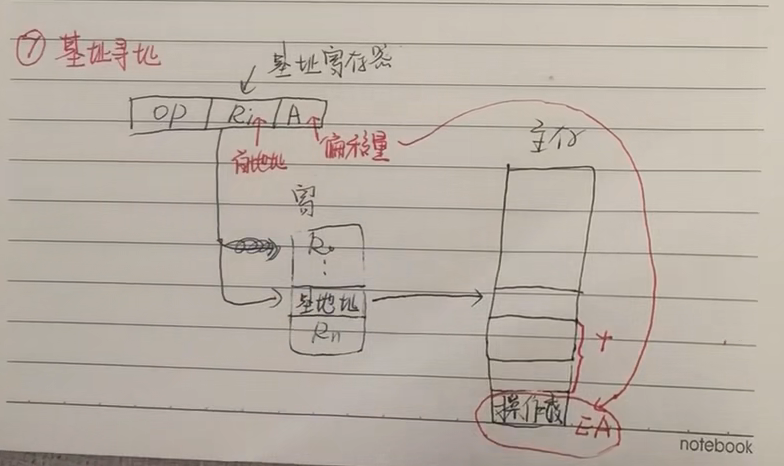 ⑦ 基址寻址
基址寄存器
OP Ri A
偏移量
主存
寄
R0
⋮
基地址
Rn
+
操作数
EA
notebook